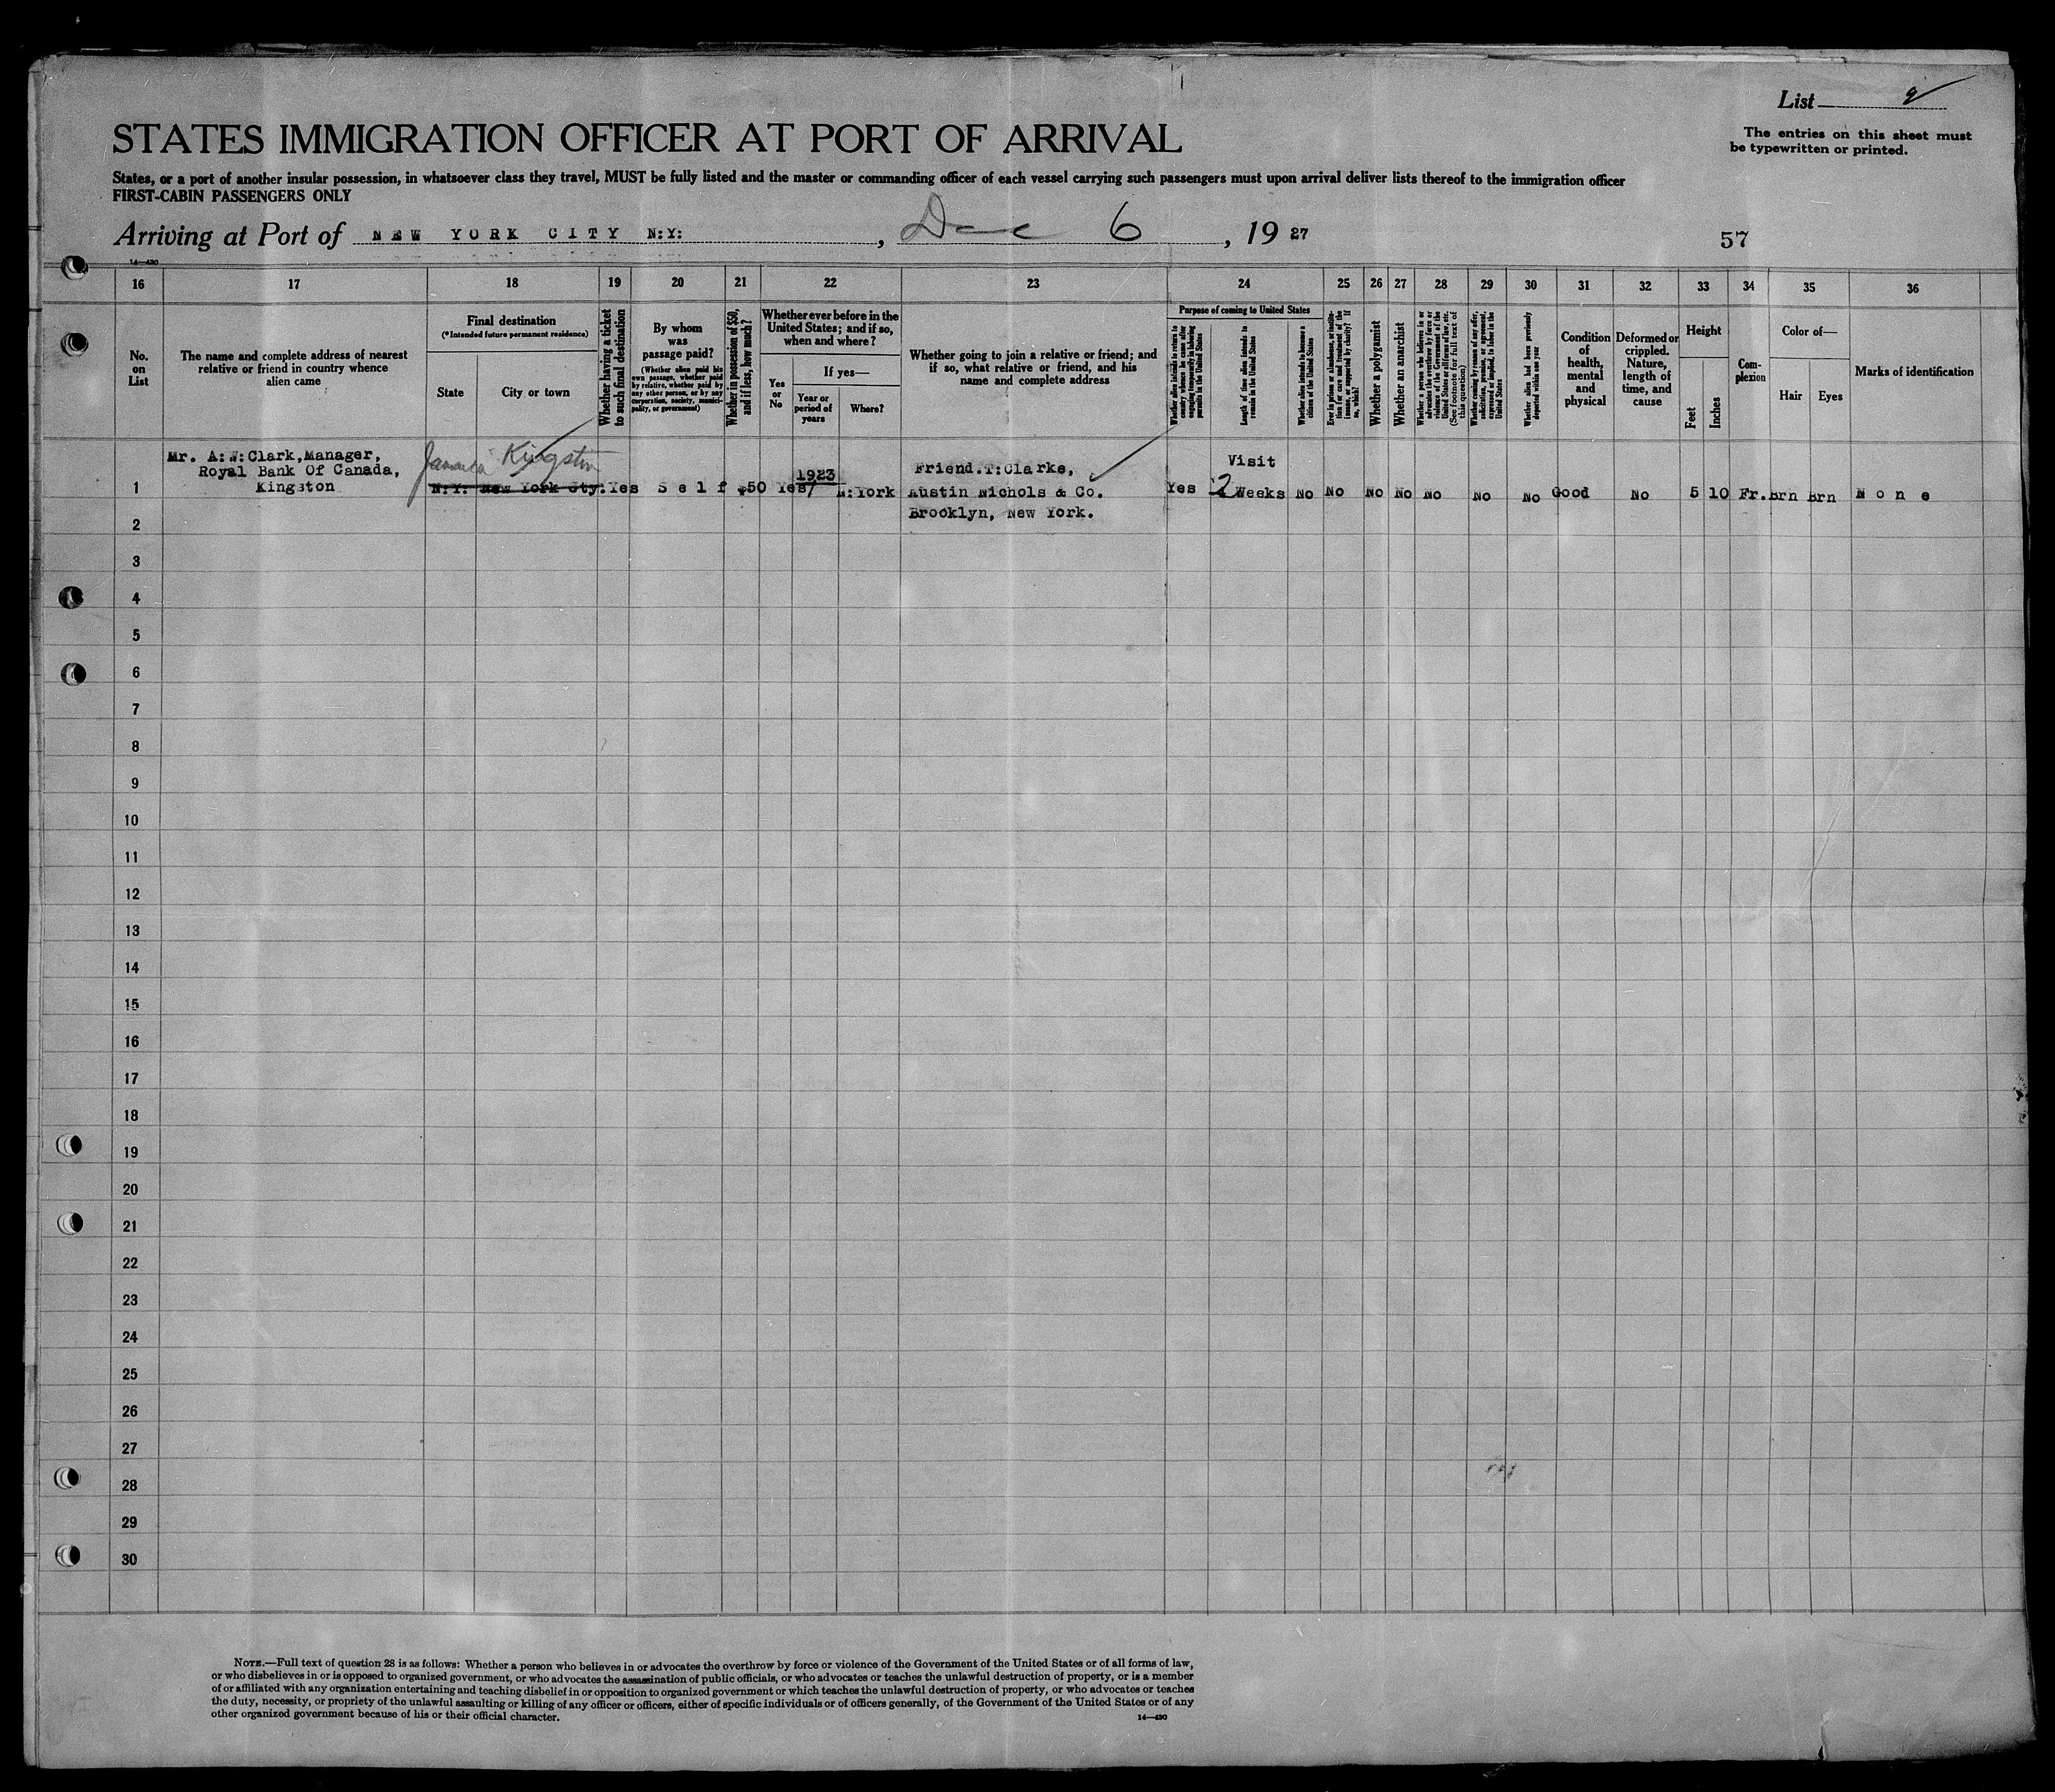 List 9
The entries on this sheet must
be typewritten or printed.
STATES IMMIGRATION OFFICER AT PORT OF ARRIVAL
States, or a port of another insular possession, in whatsoever class they travel, MUST be fully listed and the master or commanding officer of each vessel carrying such passengers must upon arrival deliver lists thereof to the immigration officer
FIRST-CABIN PASSENGERS ONLY
Arriving at Port of NEW YORK CITY N:Y: , Dec 6 , 19 27
57
14—430
16 17 18 19 20 21 22 23 24 25 26 27 28 29 30 31 32 33 34 35 36
No.
on
List
The name and complete address of nearest
relative or friend in country whence
alien came
Final destination
(*Intended future permanent residence)
State
City or town
Whether having a ticket
to such final destination
By whom
was
passage paid?
(Whether alien paid his
own passage, whether paid
by relative, whether paid by
any other person, or by any
corporation, society, munici-
pality, or government)
Whether in possession of $50,
and if less, how much?
Whether ever before in the
United States; and if so,
when and where?
Yes
or
No
If yes—
Year or
period of
years
Where?
Whether going to join a relative or friend; and
if so, what relative or friend, and his
name and complete address
Purpose of coming to United States
Whether alien intends to return to
country whence he came after
engaging temporarily in laboring
pursuits in the United States
Length of time alien intends to
remain in the United States
Whether alien intends to become a
citizen of the United States
Ever in prison or almshouse, or institu-
tion for care and treatment of the
insane, or supported by charity? If
so, which?
Whether a polygamist
Whether an anarchist
Whether a person who believes in or
advocates the overthrow by force or
violence of the Government of the
United States or all forms of law, etc.
(See footnote for full text of
this question)
Whether coming by reason of any offer,
solicitation, promise, or agreement,
expressed or implied, to labor in the
United States
Whether alien had been previously
deported within one year
Condition
of
health,
mental
and
physical
Deformed or
crippled.
Nature,
length of
time, and
cause
Height
Feet
Inches
Com-
plexion
Color of—
Hair
Eyes
Marks of identification
Mr. A:W:Clark,Manager,
Royal Bank Of Canada,
Kingston
Jamaica Kingston
1 N.Y. New York Cty. Yes Self $50 Yes 1923 N:York
Friend.T:Clarke,
Austin Nichols & Co.
Brooklyn, New York.
Visit
Yes 2 Weeks No No No No No No No Good No 5 10 Fr. Brn Brn None
2
3
4
5
6
7
8
9
10
11
12
13
14
15
16
17
18
19
20
21
22
23
24
25
26
27
28
29
30
NOTE.—Full text of question 28 is as follows: Whether a person who believes in or advocates the overthrow by force or violence of the Government of the United States or of all forms of law,
or who disbelieves in or is opposed to organized government, or who advocates the assassination of public officials, or who advocates or teaches the unlawful destruction of property, or is a member
of or affiliated with any organization entertaining and teaching disbelief in or opposition to organized government or which teaches the unlawful destruction of property, or who advocates or teaches
the duty, necessity, or propriety of the unlawful assaulting or killing of any officer or officers, either of specific individuals or of officers generally, of the Government of the United States or of any
other organized government because of his or their official character.
14—430